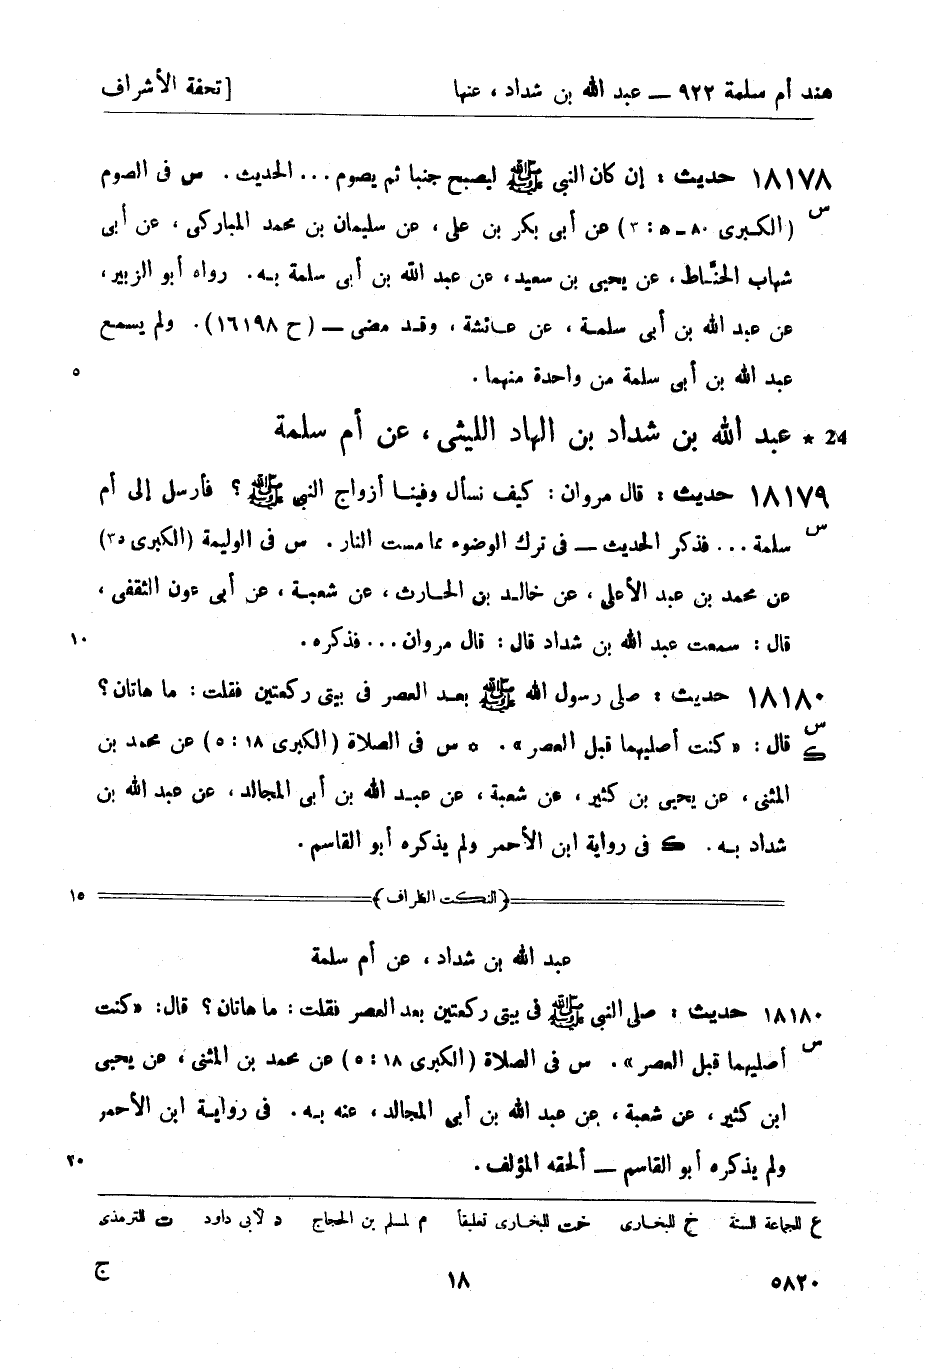 هند أم سلمة ٩٢٢ — عبد الله بن شداد ، عنها [ تحفة الأشراف
١٨١٧٨ حديث : إن كان النبي ﷺ ليصبح جنبا ثم يصوم ... الحديث . س فى الصوم
س (الكبرى ٨٠ - ه : ٣) عن أبى بكر بن على ، عن سليمان بن محمد المباركى ، عن أبى
شهاب الحنَّاط ، عن يحيى بن سعيد ، عن عبد الله بن أبى سلمة به . رواه أبو الزبير ،
عن عبد الله بن أبى سلمة ، عن عائشة ، وقد مضى — (ح ١٦١٩٨) . ولم يسمع
عبد الله بن أبى سلمة من واحدة منهما . ٥
24 * عبد الله بن شداد بن الهاد الليثى ، عن أم سلمة
١٨١٧٩ حديث : قال مروان : كيف نسأل وفينا أزواج النبي ﷺ ؟ فأرسل إلى أم
س سلمة ... فذكر الحديث — فى ترك الوضوء مما مست النار . س فى الوليمة (الكبرى ٣٥)
عن محمد بن عبد الأعلى ، عن خالد بن الحارث ، عن شعبة ، عن أبى عون الثقفى ،
قال : سمعت عبد الله بن شداد قال : قال مروان ... فذكره . ١٠
١٨١٨٠ حديث : صلى رسول الله ﷺ بعد العصر فى بيتى ركعتين فقلت : ما هاتان ؟
س ك قال : « كنت أصليهما قبل العصر » . * س فى الصلاة (الكبرى ١٨ : ٥) عن محمد بن
المثنى ، عن يحيى بن كثير ، عن شعبة ، عن عبد الله بن أبى المجالد ، عن عبد الله بن
شداد به . ك فى رواية ابن الأحمر ولم يذكره أبو القاسم .
(النكت الظراف) ١٥
عبد الله بن شداد ، عن أم سلمة
١٨١٨٠ حديث : صلى النبي ﷺ فى بيتى ركعتين بعد العصر فقلت : ما هاتان ؟ قال : « كنت
س أصليهما قبل العصر » . س فى الصلاة (الكبرى ١٨ : ٥) عن محمد بن المثنى ، عن يحيى
ابن كثير ، عن شعبة ، عن عبد الله بن أبى المجالد ، عنه به . فى رواية ابن الأحمر
ولم يذكره أبو القاسم — ألحقه المؤلف . ٢٠
ع للجماعة الستة خ للبخارى خت للبخارى تعليقاً م لمسلم بن الحجاج د لأبى داود ت للترمذى
٥٨٢٠ ١٨ ج